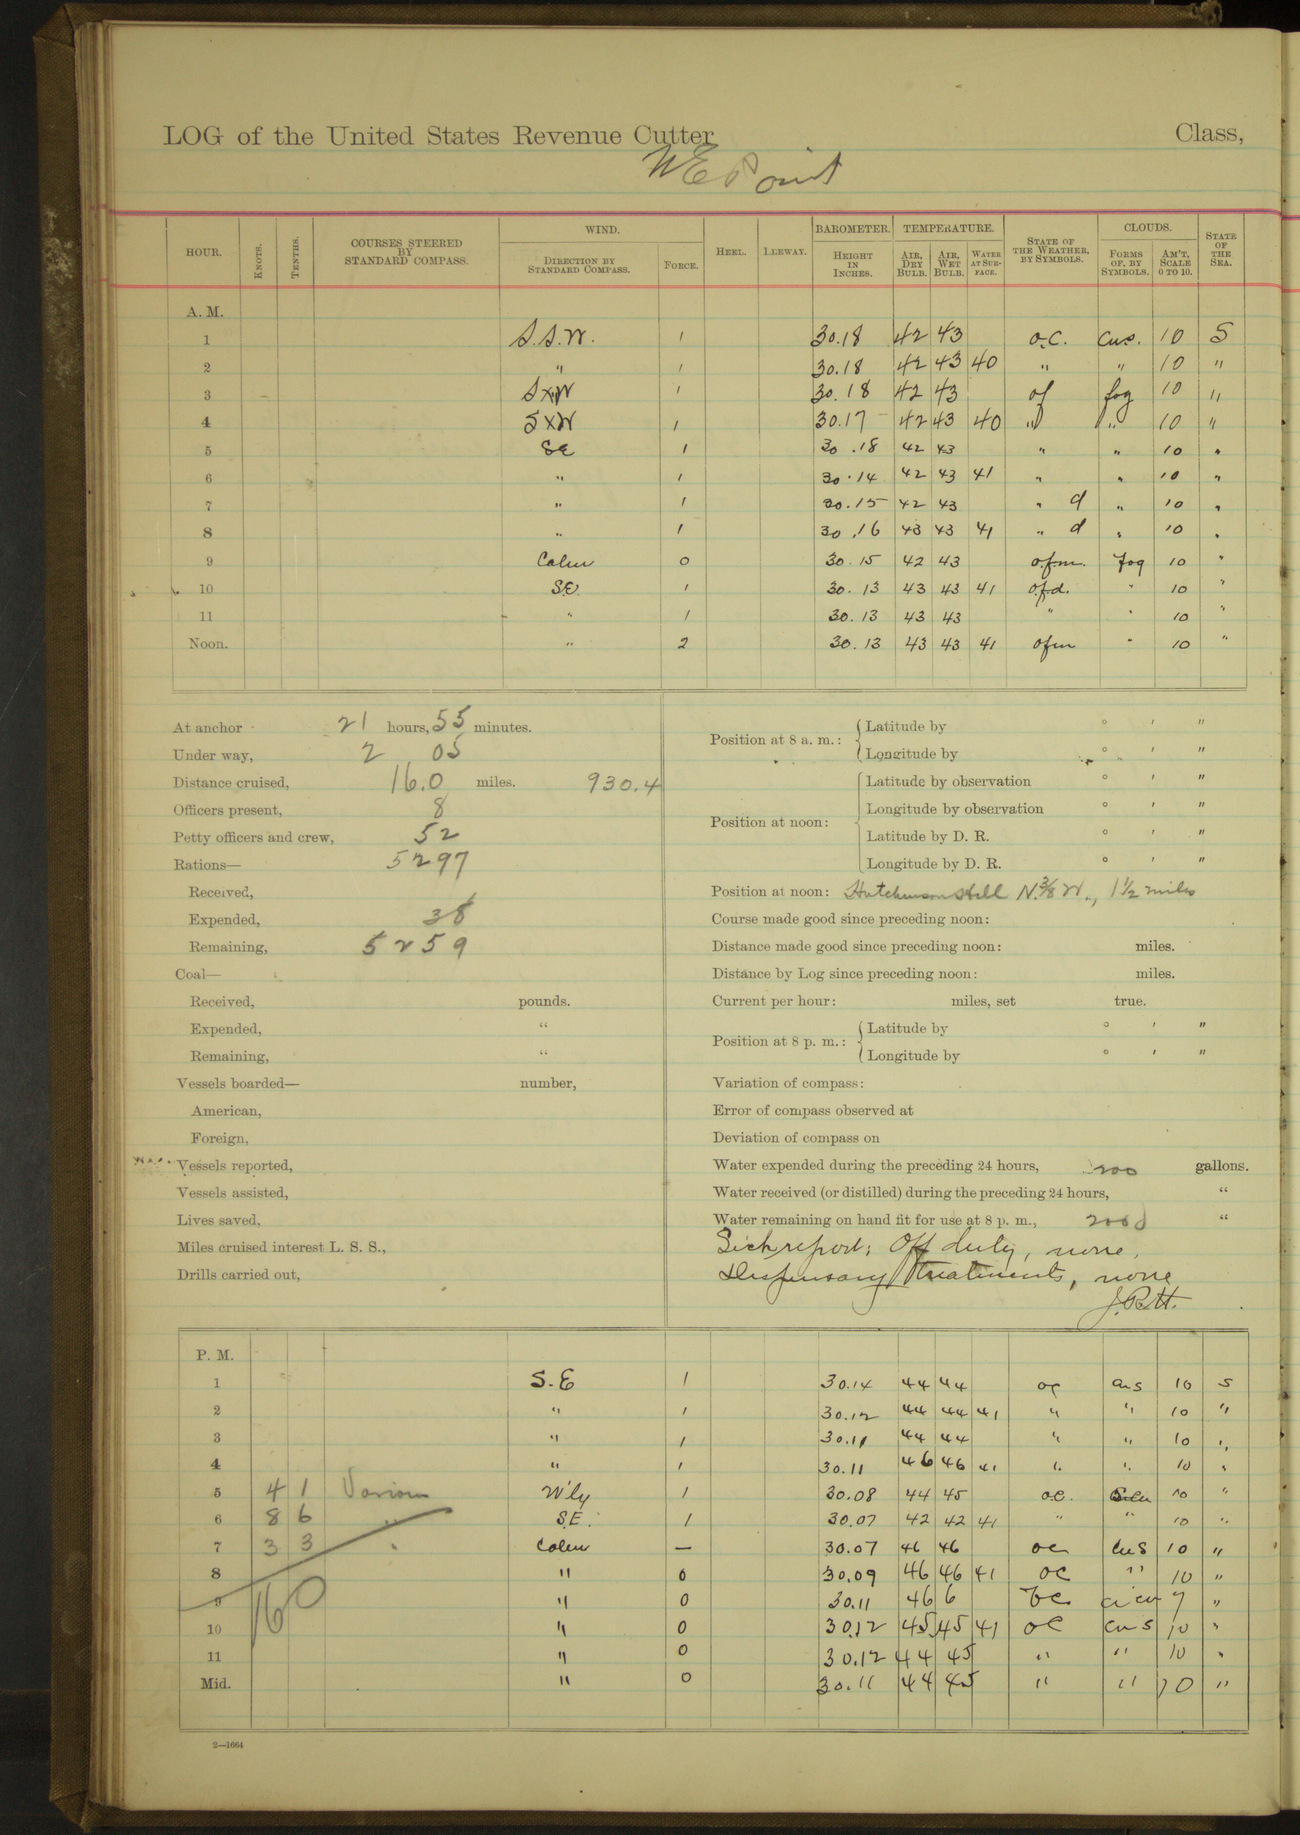 LOG of the United States Revenue Cutter Class,
WE Point
HOUR. KNOTS. TENTHS. COURSES STEERED BY STANDARD COMPASS. WIND. DIRECTION BY STANDARD COMPASS. FORCE. HEEL. LEEWAY. BAROMETER. HEIGHT IN INCHES. TEMPERATURE. AIR, DRY BULB. AIR, WET BULB. WATER AT SURFACE. STATE OF THE WEATHER, BY SYMBOLS. CLOUDS. FORMS OF, BY SYMBOLS. AM'T, SCALE 0 TO 10. STATE OF THE SEA.
A. M.
1 S.S.W. 1 30.18 42 43 o.c. cus. 10 S
2 " 1 30.18 42 43 40 " " 10 "
3 SxW 1 30.18 42 43 of fog 10 "
4 SXW 1 30.17 42 43 40 " " 10 "
5 SE 1 30.18 42 43 " " 10 "
6 " 1 30.14 42 43 41 " " 10 "
7 " 1 30.15 42 43 " d " 10 "
8 " 1 30.16 43 43 41 " d " 10 "
9 Calm 0 30.15 42 43 o.f.m. Fog 10 "
10 S.E. 1 30.13 43 43 41 o.f.d. " 10 "
11 " 1 30.13 43 43 " " 10 "
Noon. " 2 30.13 43 43 41 ofm " 10 "
At anchor 21 hours, 55 minutes.
Under way, 2 05
Distance cruised, 16.0 miles. 930.4
Officers present, 8
Petty officers and crew, 52
Rations— 5297
Received,
Expended, 38
Remaining, 5259
Coal—
Received, pounds.
Expended, "
Remaining, "
Vessels boarded— number,
American,
Foreign,
Vessels reported,
Vessels assisted,
Lives saved,
Miles cruised interest L. S. S.,
Drills carried out,
Position at 8 a. m.: Latitude by ° ' "
Longitude by ° ' "
Position at noon: Latitude by observation ° ' "
Longitude by observation ° ' "
Latitude by D. R. ° ' "
Longitude by D. R. ° ' "
Position at noon: Hutchinson Hill N.3/8 W., 1 1/2 miles
Course made good since preceding noon:
Distance made good since preceding noon: miles.
Distance by Log since preceding noon: miles.
Current per hour: miles, set true.
Position at 8 p. m.: Latitude by ° ' "
Longitude by ° ' "
Variation of compass:
Error of compass observed at
Deviation of compass on
Water expended during the preceding 24 hours, 200 gallons.
Water received (or distilled) during the preceding 24 hours, "
Water remaining on hand fit for use at 8 p. m., 2000 "
Sick report: Off duty, none.
Dispensary treatments, none
J.R.H.
P. M.
1 S.E 1 30.14 44 44 oc cus 10 S
2 " 1 30.12 44 44 41 " " 10 "
3 " 1 30.11 44 44 " " 10 "
4 " 1 30.11 46 46 41 " " 10 "
5 4 1 Various W'ly 1 30.08 44 45 o.c. 10 "
6 8 6 " S.E. 1 30.07 42 42 41 " " 10 "
7 3 3 " Calm — 30.07 46 46 oc cus 10 "
8 " 0 30.09 46 46 41 oc " 10 "
9 " 0 30.11 46 6 bc ci cu 7 "
160
10 " 0 30.12 45 45 41 oc cus 10 "
11 " 0 30.12 44 45 " " 10 "
Mid. " 0 30.11 44 45 " " 10 "
2—1664